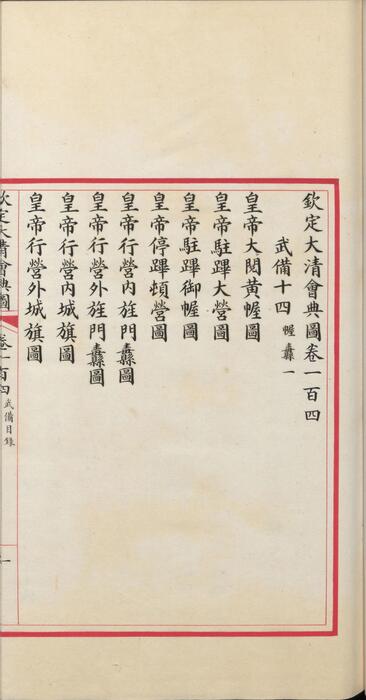 欽定大清會典圖卷一百四
武備十四 幄纛一
皇帝大閱黃幄圖
皇帝駐蹕大營圖
皇帝駐蹕御幄圖
皇帝停蹕頓營圖
皇帝行營內旌門纛圖
皇帝行營外旌門纛圖
皇帝行營內城旗圖
皇帝行營外城旗圖
欽定大清會典圖 卷一百四 武備目錄 一